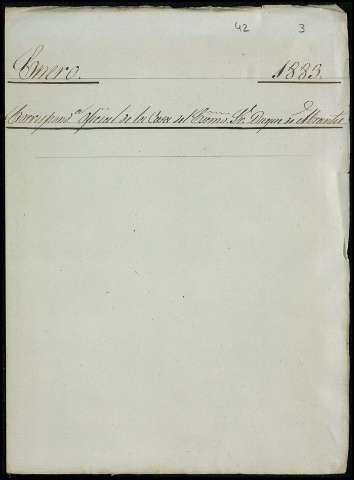 42 3
Enero. 1883.
Correspond.ª Oficial de la Casa del Excmo. Sr. Duque de Abrantes